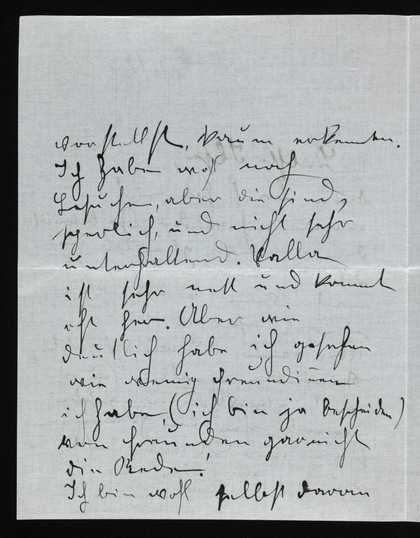 vorstellst, kaum erkennen.
Ich habe wohl noch
Besucher, aber die sind
spärlich, und nicht sehr
unterhaltend. Valla
ist sehr nett und kommt
oft her. Aber wie
deutlich habe ich gesehen
wie wenig Freundinnen
ich habe, (ich bin ja bescheiden)
von Freunden gar nicht
die Rede.
Ich bin wohl selbst daran